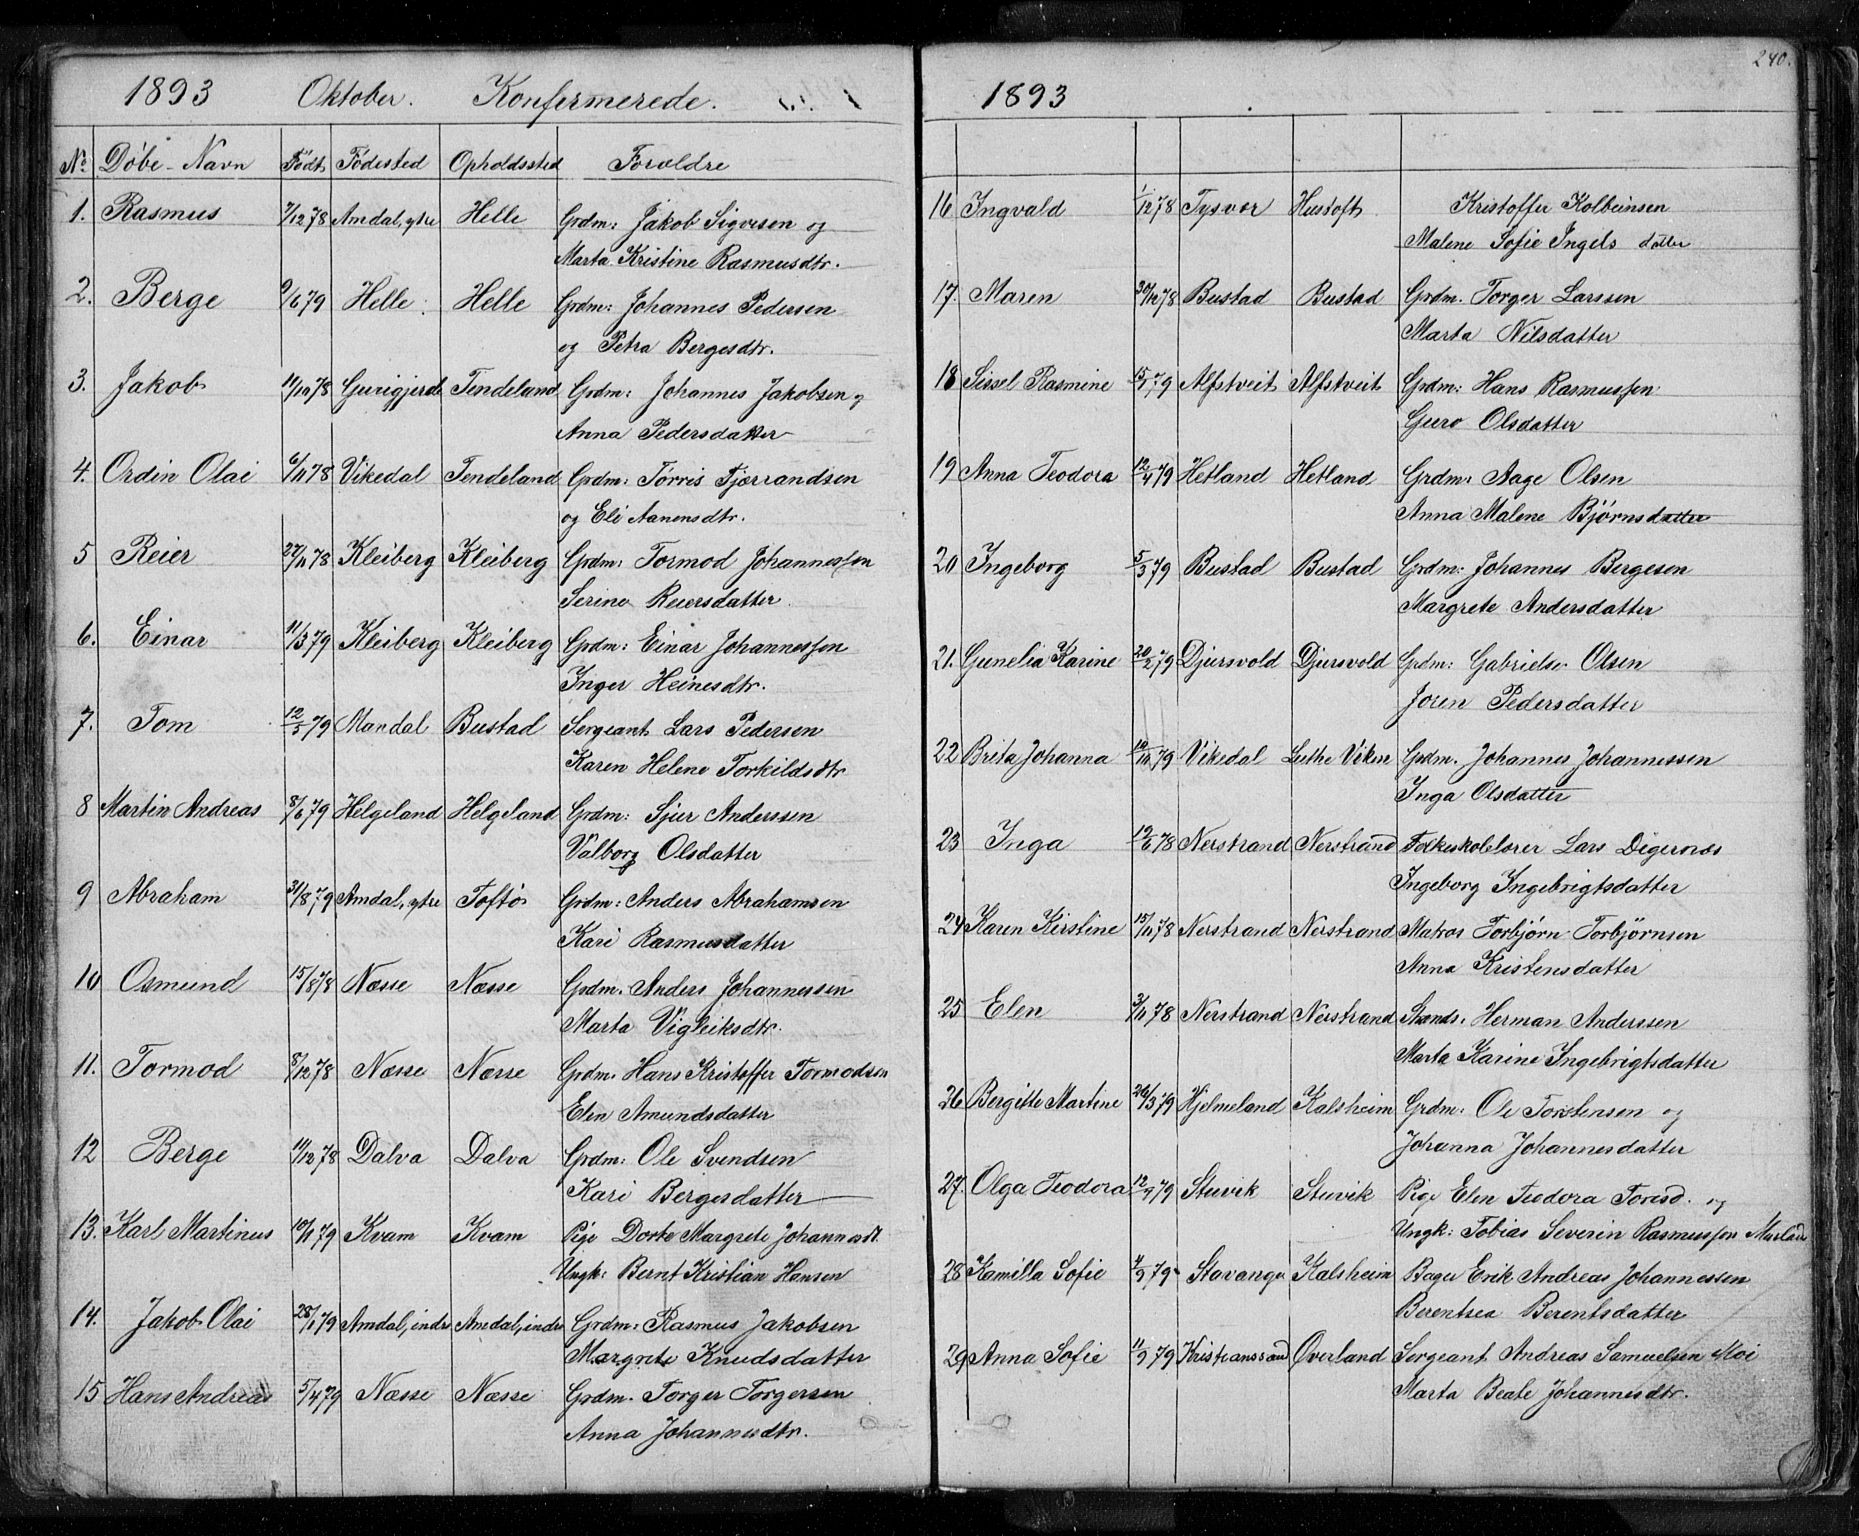 1893 Oktober. Konfermerede.
No Døbe-Navn Født Fødested Opholdssted Foroldre
1. Rasmus 7/12 78 Amdal, ytre Helle Grdm: Jakob Sigvesen og
Marta Kristine Rasmusdtr.
2. Berge 9/6 79 Helle Helle Grdm: Johannes Pedersen
og Petra Bergesdtr.
3. Jakob 11/10 78 Gurigjerde Tendeland Grdm: Johannes Jakobsen og
Anna Pedersdatter
4. Ordin Olai 6/11 78 Vikedal Tendeland Grdm: Torris Fjærrandsen
og Eli Aanensdtr.
5 Reier 22/11 78 Kleiberg Kleiberg Grdm: Tormod Johannessen
Serine Reiersdatter
6. Einar 11/3 79 Kleiberg Kleiberg Grdm: Einar Johannessen
Inger Heinesdtr.
7. Tom 12/5 79 Mandal Bustad Sergeant Lars Pedersen
Karen Helene Torkildsdtr
8 Martin Andreas 8/6 79 Helgeland Helgeland Grdm: Sjur Anderssen
Valborg Olsdatter
9 Abraham 31/8 79 Amdal, ytre Toftø Grdm: Anders Abrahamsen
Kari Rasmusdatter
10 Osmund 15/8 78 Næsse Næsse Grdm. Anders Johannessen
Marta Vigleiksdtr.
11. Tormod 8/12 78 Næsse Næsse Grdm. Hans Kristoffer Tormodsen
Elen Amundsdatter
12 Berge 11/12 78 Dalva Dalva Grdm: Ole Svendsen
Kari Bergesdatter
13. Karl Martinus 10/1 79 Kvam Kvam Pige Dorte Margrete Johannesdt.
Ungk: Bernt Kristian Hansen
14. Jakob Olai 28/1 79 Amdal, indre Amdal, indre Grdm: Rasmus Jakobsen
Margrete Knudsdatter
15 Hans Andreas 5/4 79 Næsse Næsse Grdm. Torger Torgersen
Anna Johannesdtr.
240.
1893
16 Ingvald 1/12 78 Tysvær Hustoft Kristoffer Kolbeinsen
Malene Sofie Ingels datter
17. Maren 30/12 78 Bustad Bustad Grdm. Torger Larssen
Marta Nilsdatter
18 Sissel Rasmine 15/7 79 Alfstveit Alfstveit Grdm: Hans Rasmussen
Guro Olsdatter
19 Anna Teodora 12/4 79 Hetland Hetland Grdm: Aage Olsen
Anna Malene Bjørnsdatter
20 Ingeborg 5/3 79 Bustad Bustad Grdm: Johannes Bergesen
Margrete Andersdatter
21. Gunelia Karine 20/2 79 Djursvold Djursvold Grdm: Gabriel Olsen
Joren Pedersdatter
22 Brita Johanna 10/10 79 Vikedal Grdm. Johannes Johannessen
Inga Olsdatter
23 Inga 12/6 78 Nerstrand Nerstrand Folkeskolelærer Lars Digernæs
Ingeborg Ingebrigtsdatter
24 Karen Kirstine 15/11 78 Nerstrand Nerstrand Matros Torbjørn Torbjørnsen
Anna Kristensdatter
25 Elen 3/11 78 Nerstrand Nerstrand Strands. Herman Anderssen
Marta Karine Ingebrigtsdatter
26 Bergitte Martine 26/3 79 Hjelmeland Kalsheim Grdm: Ole Torstensen og
Johanna Johannesdatter
27. Olga Teodora 12/9 79 Stuvik Stuvik Pige Elen Teodora Toresd. og
Ungk: Tobias Severin Rasmussen
28 Kamilla Sofie 4/9 79 Stavanger Kalsheim Bager Erik Andreas Johannessen
Berentsea Berentsdatter
29 Anna Sofie 11/9 79 Kristianssand Øverland Sergeant Andreas Samuelsen Moi
Marta Beate Johannesdtr.